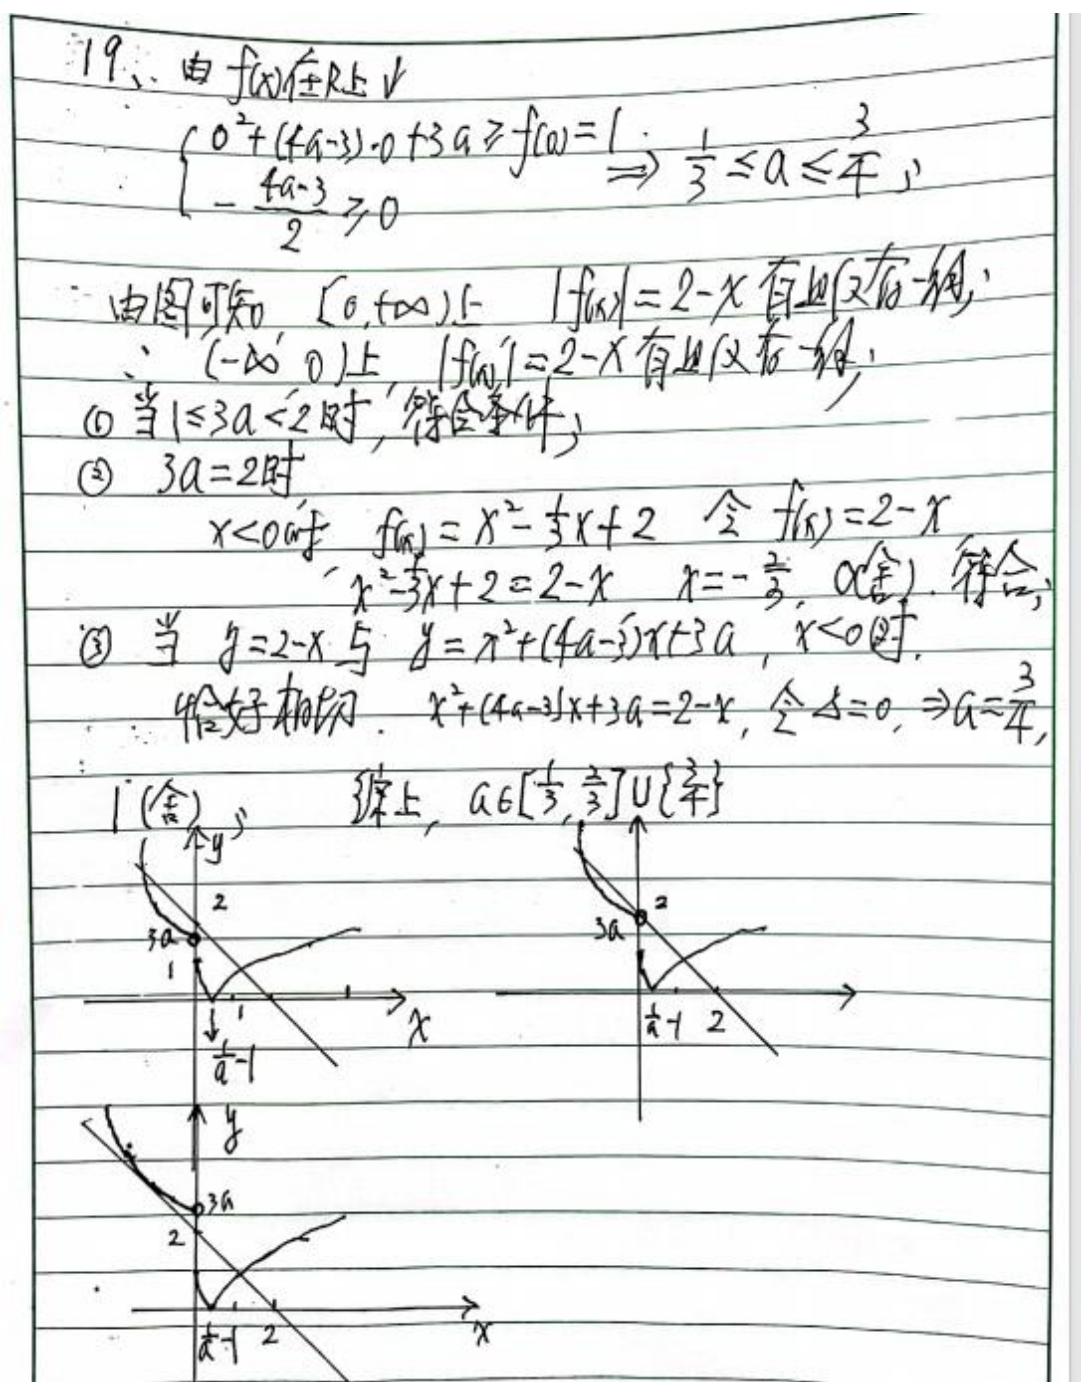 19、由 f(x)在R上↓
{ 0²+(4a-3)·0+3a ≥ f(0)=1
-(4a-3)/2 ≥ 0
⇒ 1/3 ≤ a ≤ 3/4;
由图可知 [0,+∞)上 |f(x)|=2-x 有且仅有一解;
∴ (-∞,0)上, |f(x)|=2-x 有且仅有一解;
① 当1≤3a<2时, 符合条件;
② 3a=2时
x<0时 f(x)=x²-1/3x+2 令 f(x)=2-x
x²-1/3x+2=2-x x=-2/3, 0(舍). 符合;
③ 当 y=2-x 与 y=x²+(4a-3)x+3a, x<0时.
恰好相切. x²+(4a-3)x+3a=2-x, 令Δ=0, ⇒a=3/4,
1(舍); 综上, a∈[1/3, 2/3]∪{3/4}
y
2
3a
1
1
x
1/a-1
2
3a
1/a-1
2
y
3a
2
1/a-1
2
x